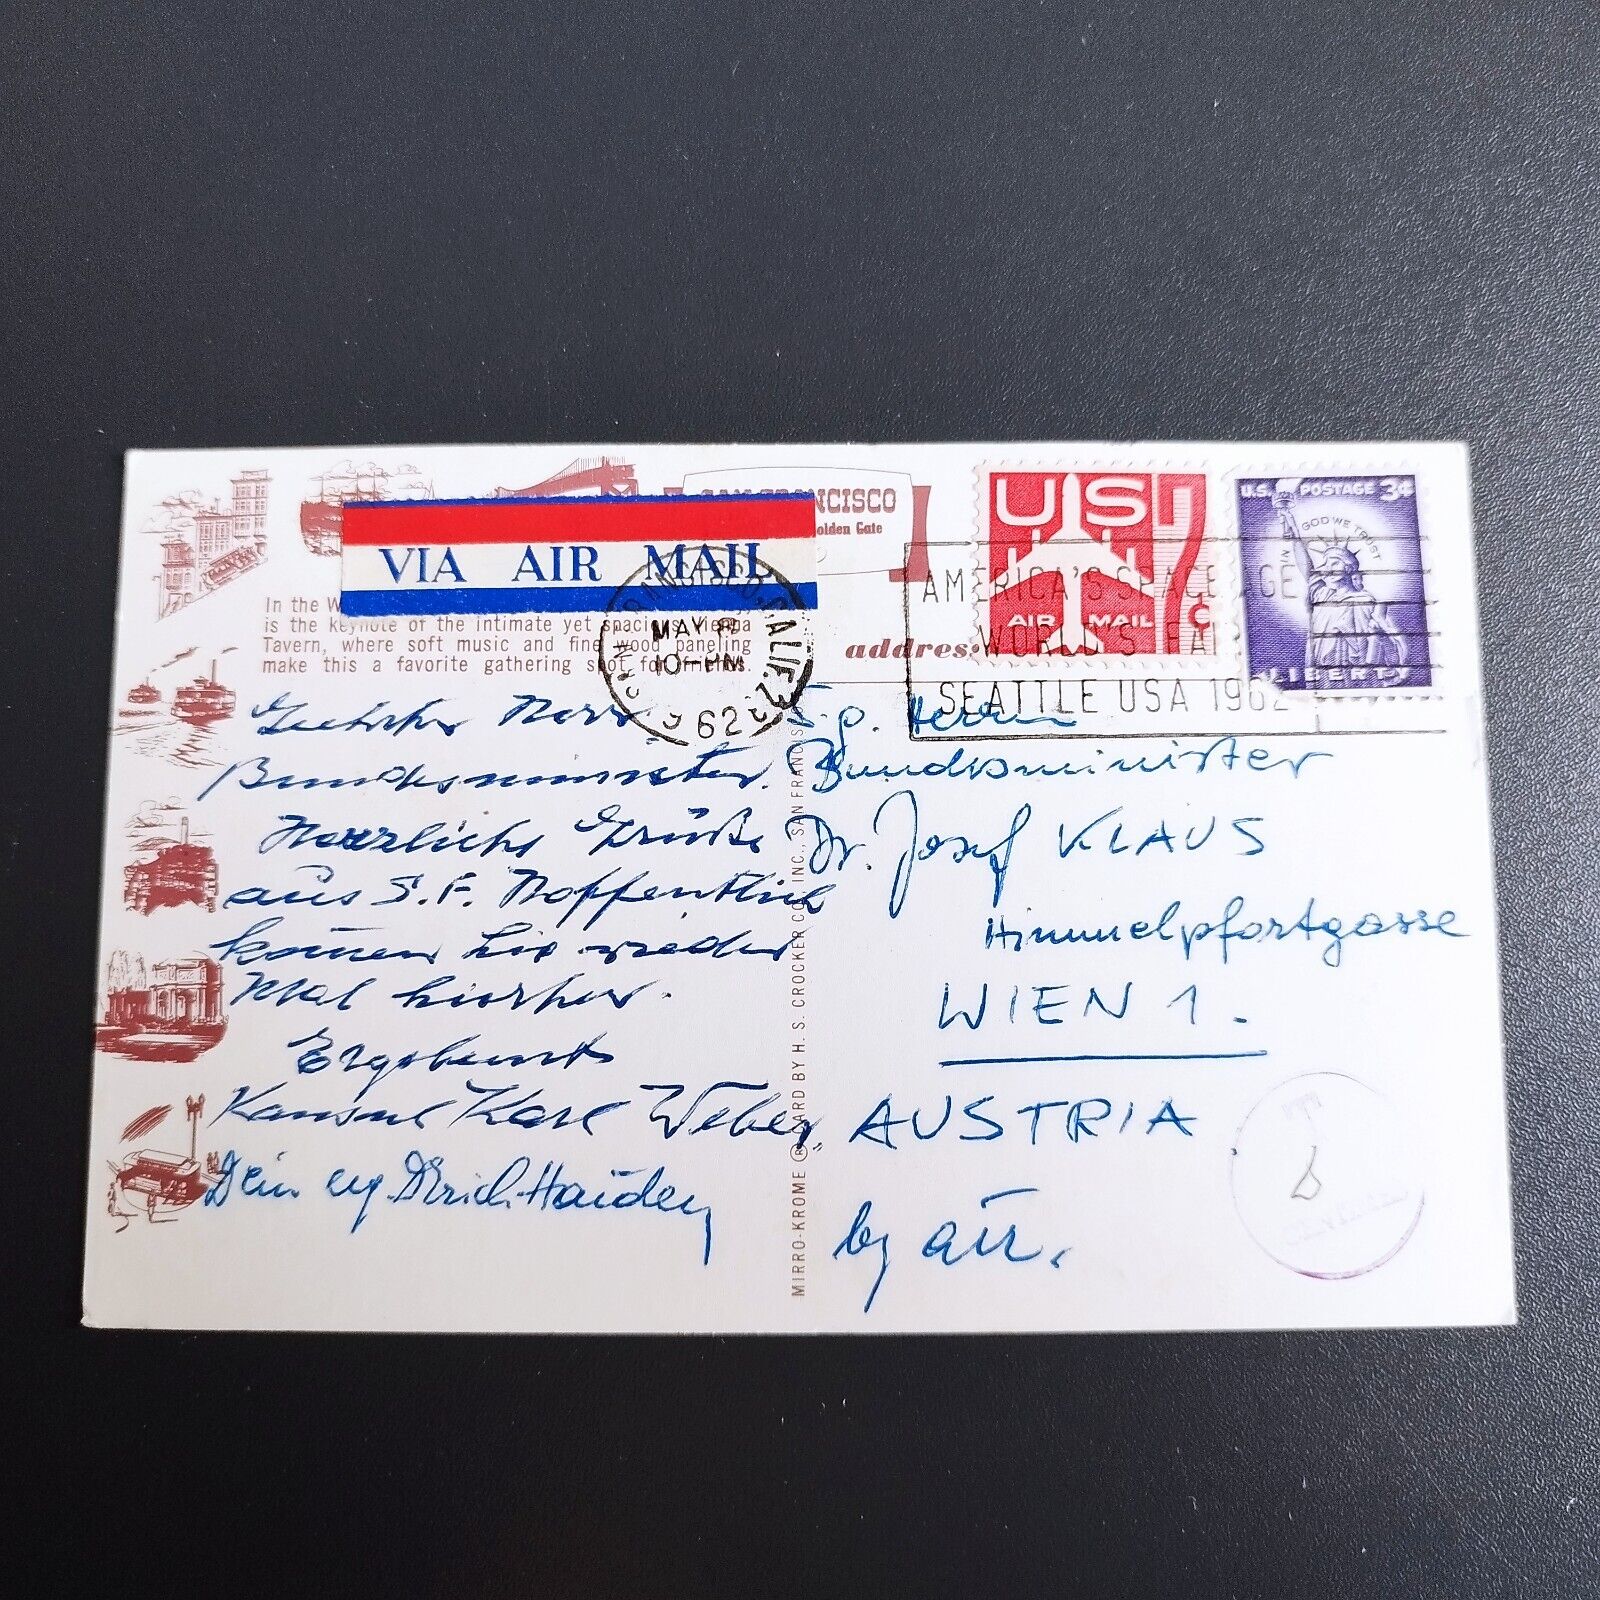 SAN FRANCISCO
Golden Gate
VIA AIR MAIL
In the
is the keynote of the intimate yet spacious Vienna
Tavern, where soft music and fine wood paneling
make this a favorite gathering spot for
address:
US
AIR MAIL
7¢
U.S. POSTAGE 3¢
IN GOD WE TRUST
LIBERTY
SAN FRANCISCO, CALIF.
MAY 8
10-PM
62
AMERICA'S SPACE AGE
WORLD'S FAIR
SEATTLE USA 1962
Geehrter Herr
Bundesminister.
Herzliche Grüße
aus S.F. Hoffentlich
kommen Sie wieder
Mal hierher.
Ergebenst
Konsul Karl Weber
Dein erg.
MIRRO-KROME ® CARD BY H. S. CROCKER CO., INC., SAN FRANCISCO
Herrn
Bundesminister
Dr. Josef KLAUS
Himmelpfortgasse
WIEN 1.
AUSTRIA
by air.
T